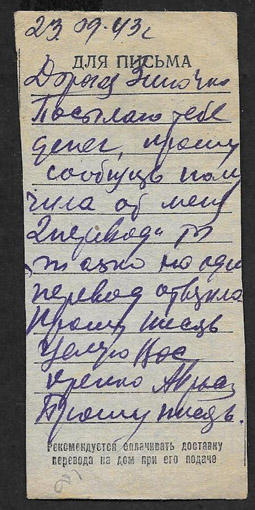 23.09.43 г
ДЛЯ ПИСЬМА
Дорогая Зиночка
Посылаю тебе
денег, прошу
сообщить полу
чила от меня
2 перевода ты
только на один
перевод ответила
Прошу писать
Целую Вас
крепко
Прошу писать.
Рекомендуется оплачивать доставку
перевода на дом при его подаче